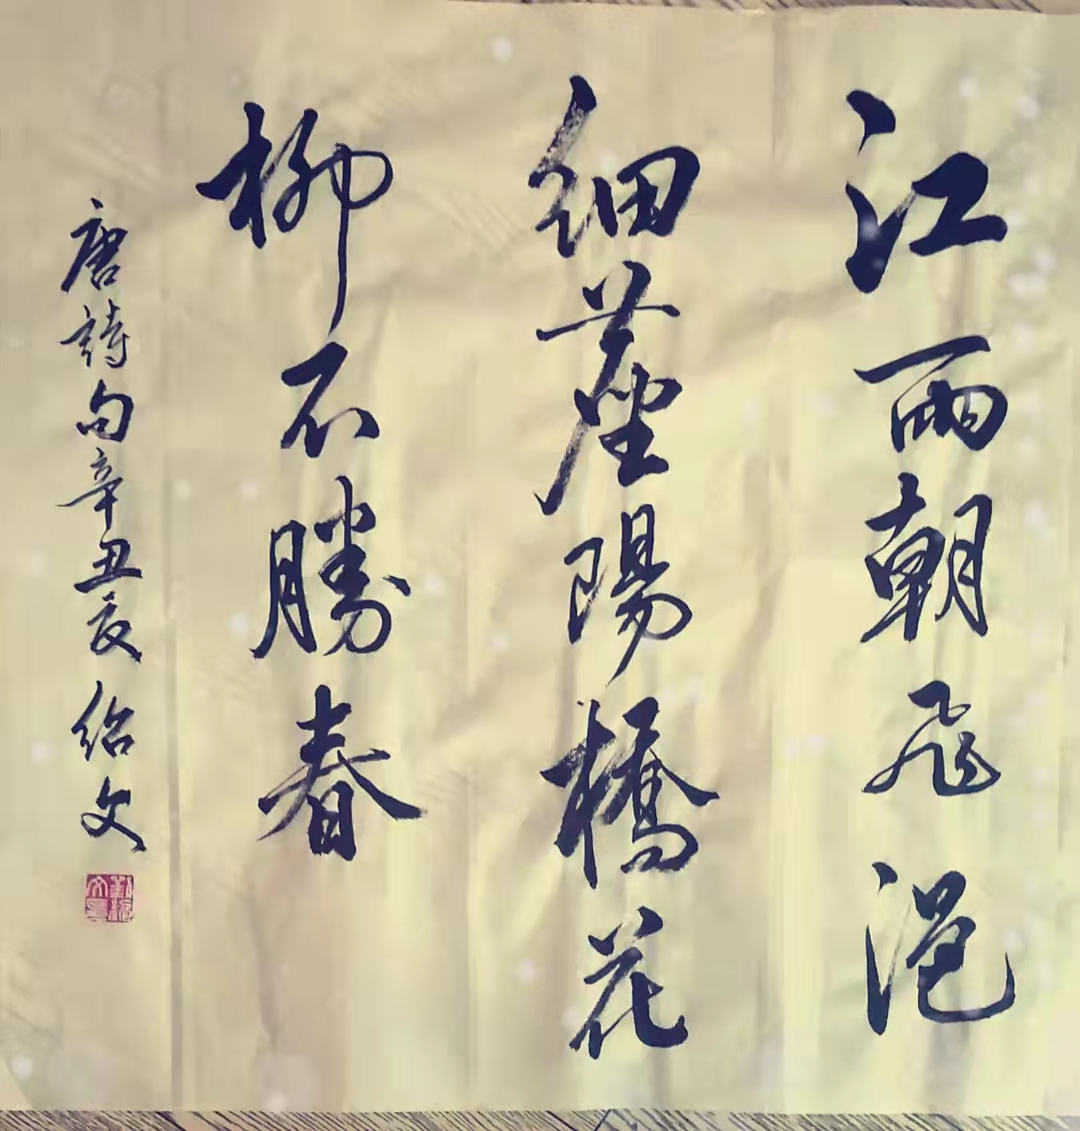 江雨朝飛浥
細塵陽橋花
柳不勝春
唐詩句辛丑夏紹文